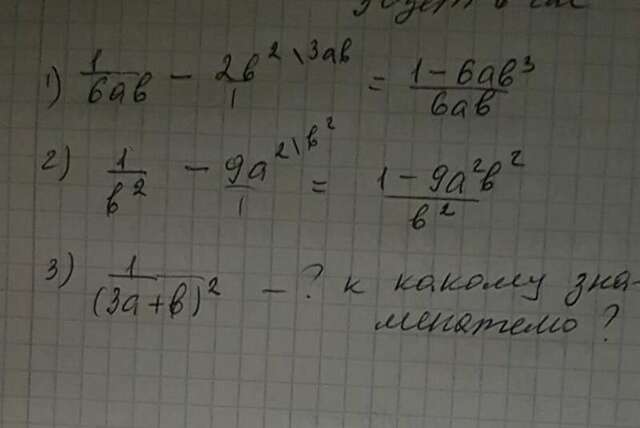 1) 1/6ab − 2b²\3ab/1 = 1−6ab³/6ab
2) 1/b² − 9a²\b²/1 = 1−9a²b²/b²
3) 1/(3a+b)² − ? к какому зна-
менателю ?